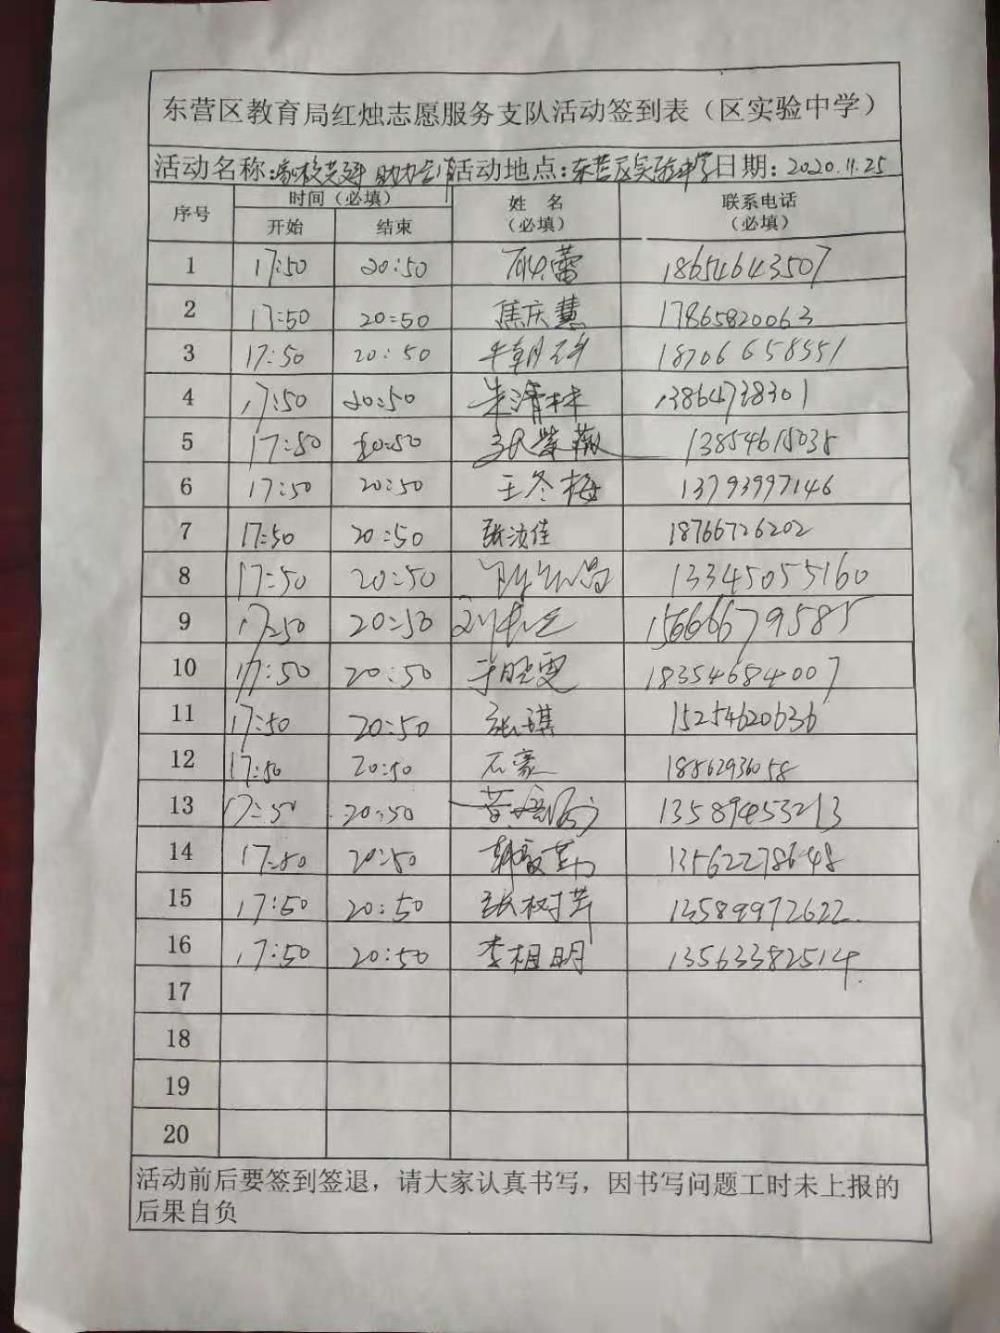 东营区教育局红烛志愿服务支队活动签到表（区实验中学）
活动名称：家校共建 助力 活动地点：东营区实验中学 日期：2020.11.25
序号 时间（必填） 姓 名（必填） 联系电话（必填）
开始 结束
1 17:50 20:50 蕾 18654643507
2 17:50 20:50 焦庆慧 17865820063
3 17:50 20:50 18706658551
4 17:50 20:50 朱清林 13864738301
5 17:50 20:50 紫薇 13854615035
6 17:50 20:50 王冬梅 13793997146
7 17:50 20:50 张汝佳 18766726202
8 17:50 20:50 13345055160
9 17:50 20:50 刘 15666679585
10 17:50 20:50 晓雯 18354684007
11 17:50 20:50 张琪 15254620636
12 17:50 20:50 石豪 18562936058
13 17:50 20:50 黄 13589453213
14 17:50 20:50 13562278648
15 17:50 20:50 张树芹 13589972622.
16 17:50 20:50 李相明 13563382514.
17
18
19
20
活动前后要签到签退，请大家认真书写，因书写问题工时未上报的
后果自负